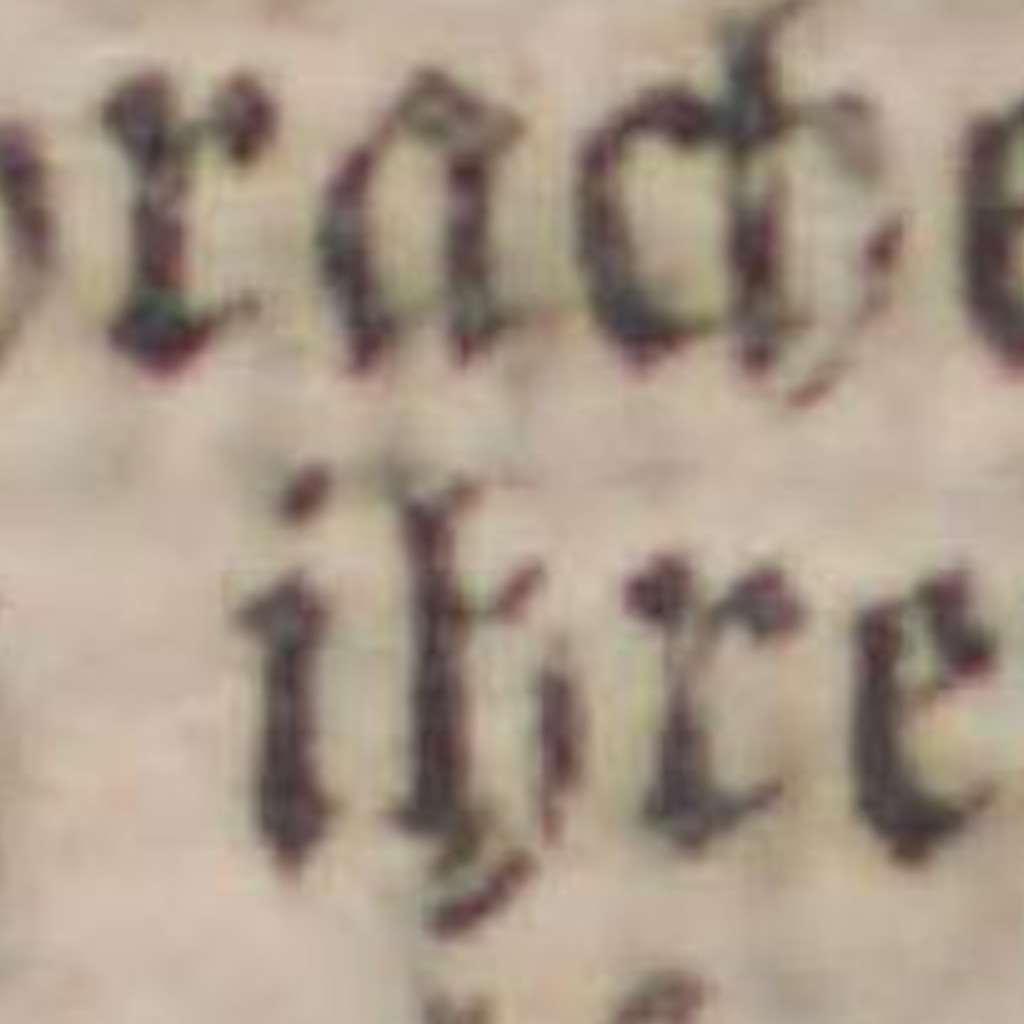 prache
ihre